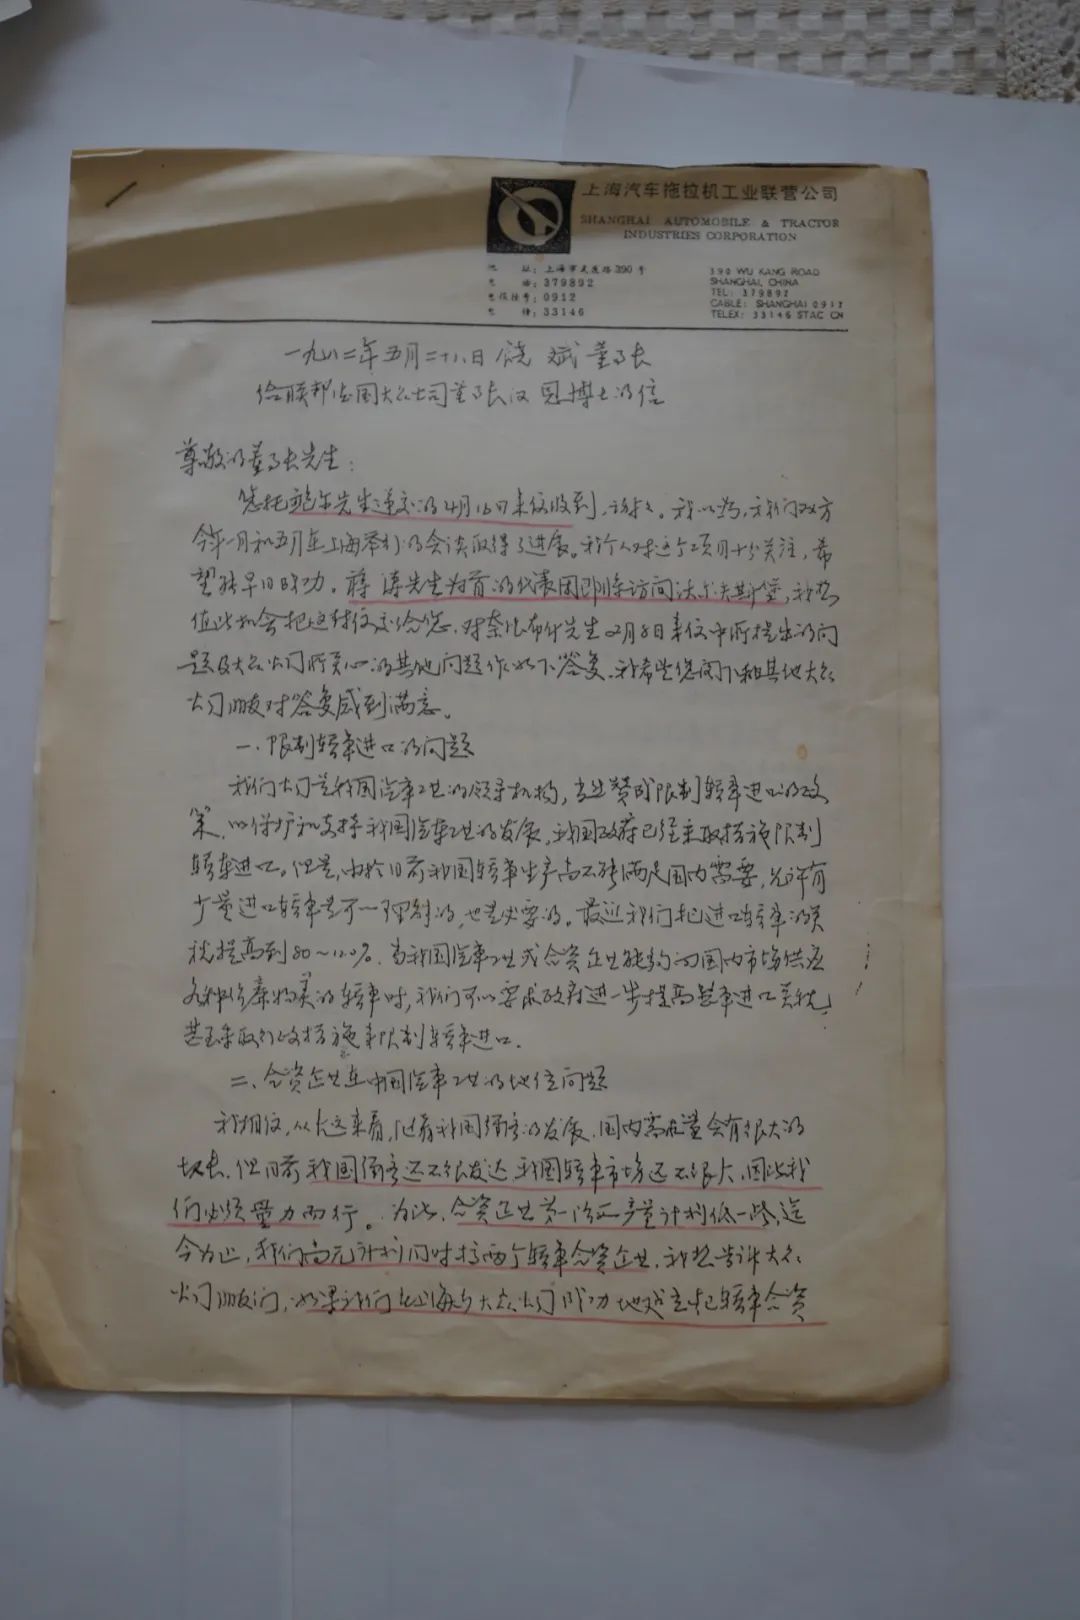 上海汽车拖拉机工业联营公司
SHANGHAI AUTOMOBILE & TRACTOR
INDUSTRIES CORPORATION
地 址：上海市武康路390号
电 话：379892
电报挂号：0912
电 传：33146
390 WU KANG ROAD
SHANGHAI, CHINA
TEL: 379892
CABLE: SHANGHAI 0912
TELEX: 33146 STAC CN
一九八二年五月二十八日饶 斌董事长
给联邦德国大众公司董事长汉 恩博士的信
尊敬的董事长先生：
您托鲍尔先生递交的4月16日来信收到，谢谢。我以为，我们双方
今年一月和五月在上海举行的会谈取得了进展。我个人对这个项目十分关注，希
望能早日成功。蒋涛先生为首的代表团即将访问沃尔夫斯堡，我想
值此机会把这封信交给您，对 先生2月8日来信中所提出的问
题及大众公司所关心的其他问题作如下答复，我希望您阁下和其他大众
公司朋友对答复感到满意。
一、限制轿车进口的问题
我们公司是我国汽车工业的领导机构，当然赞成限制轿车进口的政
策，以保护和支持我国汽车工业的发展，我国政府已经采取措施限制
轿车进口。但是，由于目前我国轿车生产尚不能满足国内需要，允许有
少量进口轿车是可以理解的，也是必要的。最近我们把进口轿车的关
税提高到80～120%。当我国汽车工业或合资企业能够向国内市场供应
各种价廉物美的轿车时，我们可以要求政府进一步提高轿车进口关税，
甚至采取行政措施来限制轿车进口。
二、合资企业在中国汽车工业的地位问题
我相信，从长远来看，随着我国经济的发展，国内需求量会有很大的
增长，但目前我国经济还不很发达，我国轿车市场还不很大，因此我
们必须量力而行。为此，合资企业第一阶段产量计划低一些，迄
今为止，我们尚无计划同时搞两个轿车合资企业，我想告诉大众
公司朋友们，如果我们在上海与大众公司成功地建立起轿车合资